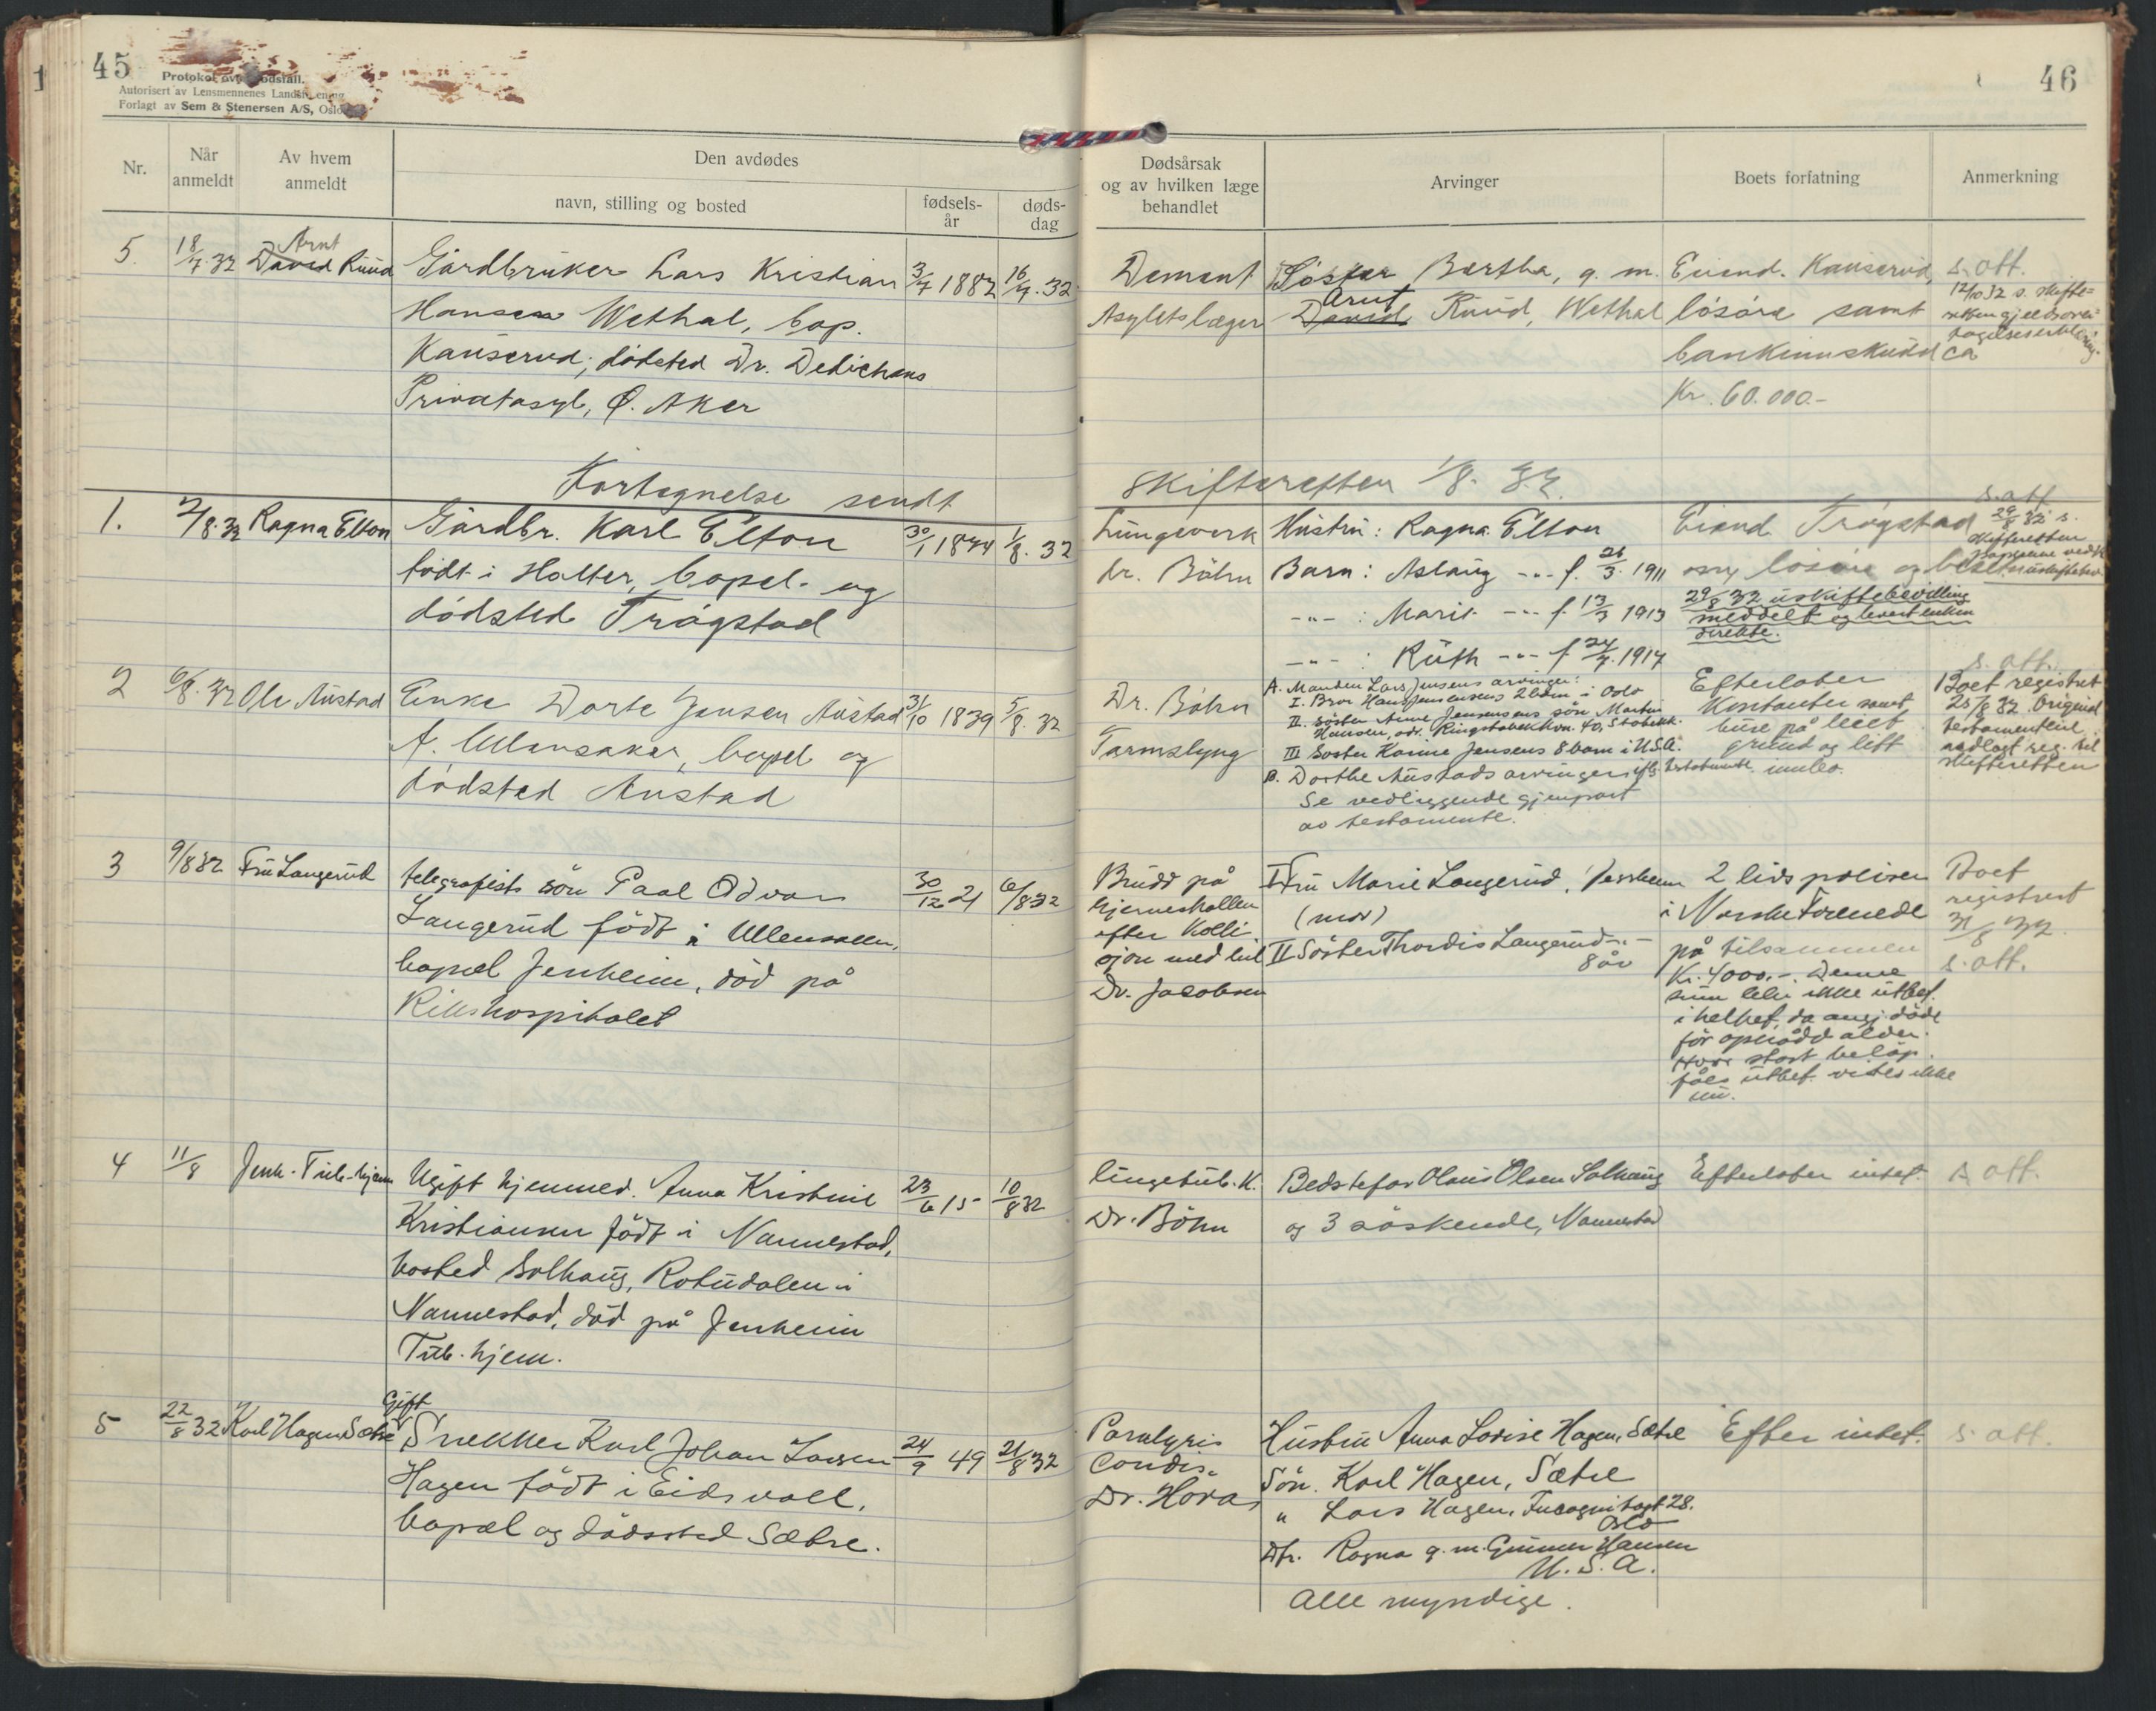 45
Protokol over dødsfall.
Autorisert av Lensmennenes Landsforening
Forlagt av Sem & Stenersen A/S, Oslo
Nr.
Når anmeldt
Av hvem anmeldt
Den avdødes
navn, stilling og bosted
fødsels-år
døds-dag
5. 18/7.32 Arnt David Ruud Gårdbruker Lars Kristian 3/7 1882 16/7.32
Hansen Wethal, bop.
Kauserud; dødsted Dr. Dedichens
Privatasyl, Ø. Aker
Fortegnelse sendt
1. 2/8.32 Ragna Elton Gårdbr. Karl Elton 30/1 1874 1/8.32
født i Holter, bopel og
dødsted Trøgstad
2 6/8.32 Ole Austad Enke Dorte Jensen Austad 31/10 1839 5/8.32
f. Ullensaker, bopel og
dødsted Austad
3 9/8 32 Fru Langerud telegrafists søn Paal Odvar 30/12 21 6/8 32
Langerud født i Ullensaker,
bopæl Jessheim, død på
Rikshospitalet
4 11/8 Jessh. Tub.-hjem Ugift hjemmev. Anna Kristine 23/6 15 10/8 32
Kristiansen født i Nannestad,
bosted Solhaug, Rotudalen i
Nannestad, død på Jessheim
Tub. hjem.
5 22/8 32 Karl Hagen Sætre Gift
Snekker Karl Johan Larsen 24/9 49 21/8 32
Hagen født i Eidsvoll,
bopæl og dødssted Sætre.
46
Dødsårsak og av hvilken læge behandlet
Arvinger
Boets forfatning
Anmerkning
Dement Søster Bertha, g. m. Eiend. Kauserud, s. att.
Asylets læger Arnt David Ruud, Wethal løsøre samt
12/10 32 s. skifte-
retten gjeldsover-
tagelseserklæring.
bankinnskudd ca
Kr. 60.000.-
skifteretten 1/8. 32.
Lungeverk Hustru: Ragna Elton Eiend. Trøgstad
s. att.
29/8 32 s.
skifteretten
papirene vedk.
dr. Bøhn Barn: Aslaug -"- f. 26/3. 1911 løsøre og
-"- : Marit -"- f. 13/3 1913
29/8 32 uskiftebevilling
meddelt og levert enken
direkte.
-"- : Ruth -"- f. 24/7. 1917
Dr. Bøhn
Tarmslyng
A. Manden Lars Jensens arvinger:
I. Bror Hans Jensens 2 barn i Oslo
II. Søster Anne Jensens søn Martin
Hansen, adr. Ringstabekkvn. 40, Stabekk.
III Søster Karine Jensens 8 barn i U.S.A.
B. Dorthe Austads arvinger iflg. testamente
Se vedliggende gjenpart
av testamente.
Efterlater
kontanter samt
huse på leiet
grund og litt
innbo.
s. att.
Boet registrert
25/8 32. Original
testamentet
vedlagt reg. til
skifteretten
Brudd på
hjerneskallen
efter kolli-
sjon med bil
Dr. Jacobsen
I Fru Marie Langerud, Jessheim
(mor)
II Søster Thordis Langerud -"-
8 år
2 livspoliser
i Norske Forenede
på tilsammen
Kr. 4000.-. Denne
sum blir ikke utbet.
i helhet, da angj. døde
før opnådd alder.
Hvor stort beløp
fåes utbet. vites ikke
nu.
Boet
registrert
31/8 32.
s. att.
lungetub. K. Bedstefar Olaus Olsen Solhaug Efterlater intet. s. att.
Dr. Bøhn og 3 søskende, Nannestad
Paralysis
Cordis.
Dr. Horas
Hustru Anna Lovise Hagen, Sætre
Søn. Karl Hagen, Sætre
" Lars Hagen, Incognitogt 28.
Oslo
Dtr. Ragna g. m. Gunner Hansen
U. S. A.
Alle myndige.
Efter intet.
s. att.